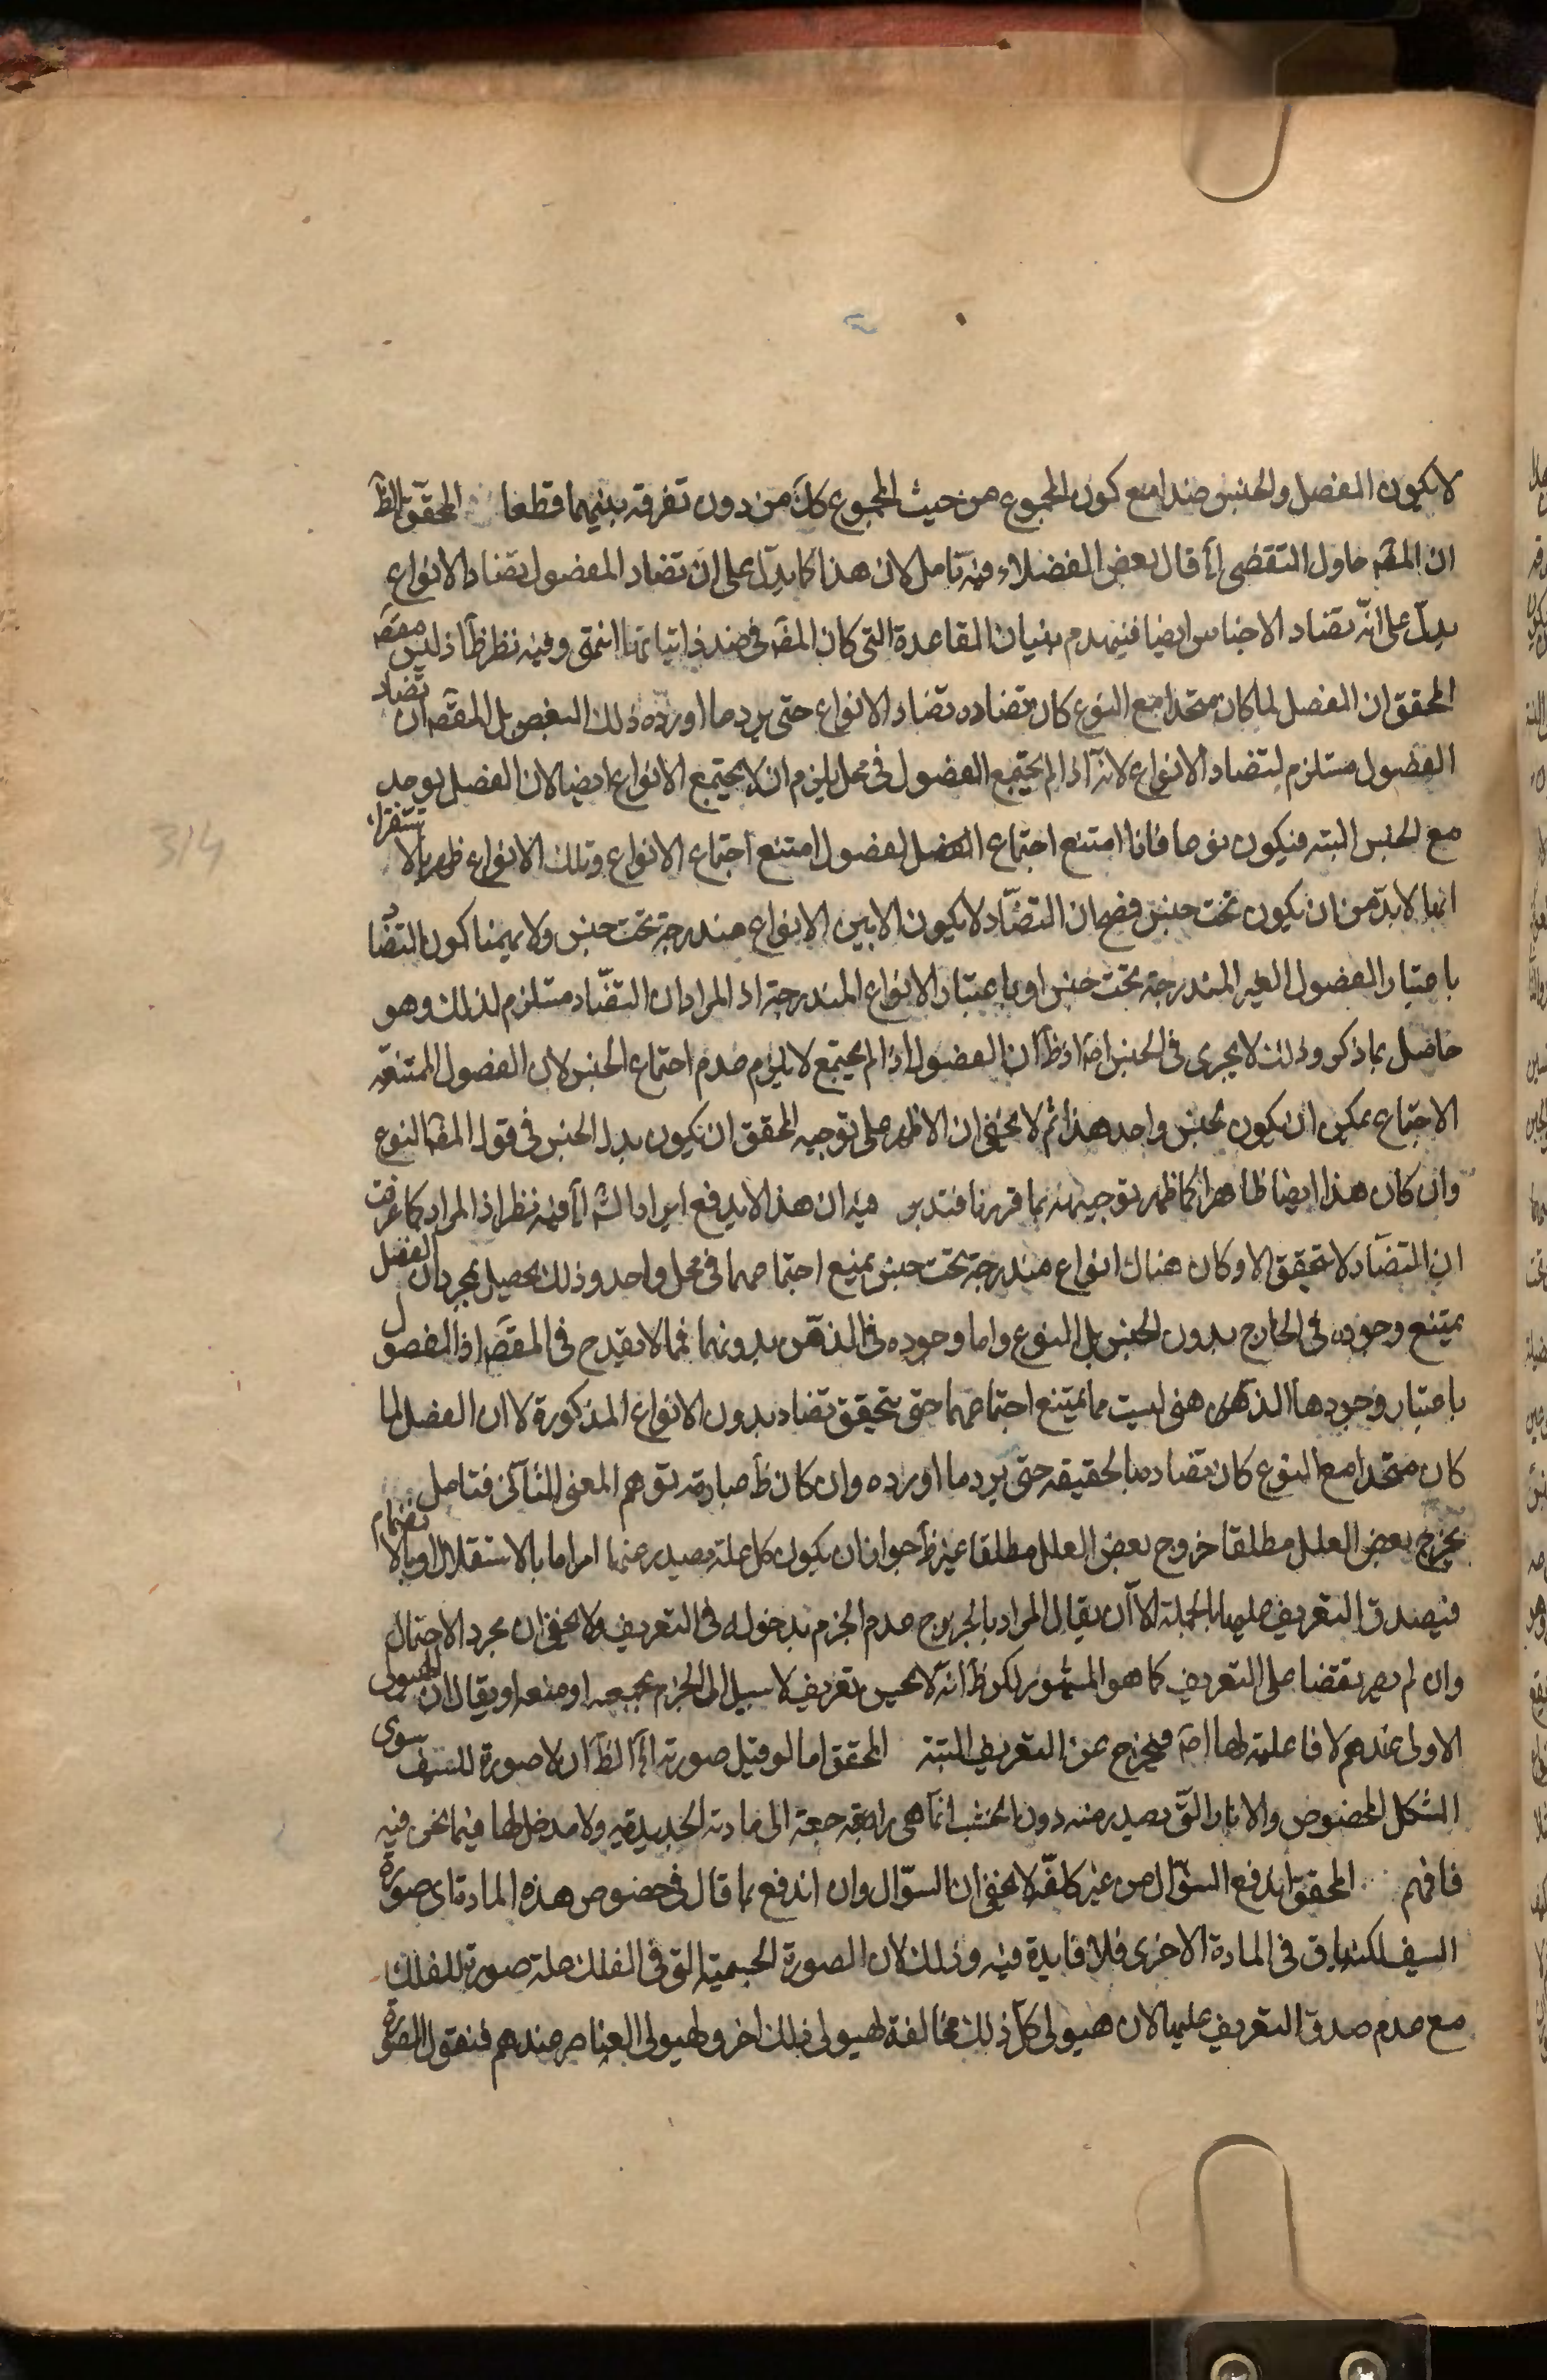 لا يكون الفصل والجنس ضدا مع كون المجموع من حيث المجموع كك من دون تفرقة بينهما قطعا المحقق الظ
ان المقص حاول التقصى اه قال بعض الفضلاء فيه تامل لان هذا كما يدل على ان تضاد الفصول تضاد الانواع
يدل على انه تضاد الاجناس ايضا فينهدم بنيان القاعدة التى كان المقص فى صدد اثباتها انتهى وفيه نظر ظ اذ ليس مقصو
المحقق ان الفصل لما كان متحدا مع النوع كان تضاده تضاد الانواع حتى يرد ما اورده ذلك البعض بل المقص ان تضاد
الفصول مستلزم لتضاد الانواع لانه اذا لم يجتمع الفصول فى محل يلزم ان لا يجتمع الانواع ايضا لان الفصل يوجد
مع الجنس البتة فيكون نوعا فاذا امتنع اجتماع الفصول امتنع اجتماع الانواع وتلك الانواع ظهر بالاستقراء
انها لا بد من ان يكون تحت جنس فصح ان التضاد لا يكون الا بين الانواع مندرجة تحت جنس ولا يهمنا كون التضاد
باعتبار الفصول الغير المندرجة تحت جنس او باعتبار الانواع المندرجة اذ المراد ان التضاد مستلزم لذلك وهو
حاصل بما ذكر وذلك لا يجرى فى الجنس اصه اذ ظ ان الفصول اذا لم يجتمع لا يلزم عدم اجتماع الجنس لان الفصول الممتنعة
الاجتماع يمكن ان يكون لجنس واحد هذا ثم لا يخفى ان الاظهر على توجيه المحقق ان يكون بدل الجنس فى قول المقص النوع
وان كان هذا ايضا ظاهرا كما ظهر توجيهه بما قررنا فتدبر فيه ان هذا لا يدفع ايراد الش اه فيه نظر اذ المراد كما عرفت
ان التضاد لا يتحقق الا وكان هناك انواع مندرجة تحت جنس يمتنع اجتماعهما فى محل واحد وذلك يحصل بمجرد ان الفصل
يمتنع وجوده فى الخارج بدون الجنس بل النوع واما وجوده فى الذهن بدونهما فمما لا يقدح فى المقص اذ الفصول
باعتبار وجودها الذهنى ليست مما يمتنع اجتماعهما حتى يتحقق تضاد بدون الانواع المذكورة لا ان الفصل لما
كان متحدا مع النوع كان تضاده بالحقيقة حتى يرد ما اورده وان كان ظ عبارته توهم المعنى الثانى فتامل
يخرج بعض العلل مطلقا خروج بعض العلل مطلقا غير ظ جواز ان يكون كل علة يصدر عنها امر اما بالاستقلال او بالانضمام
فيصدق التعريف عليها بالجملة الا ان يقال المراد بالخروج عدم الجزم بدخوله فى التعريف ولا يخفى ان مجرد الاحتمال
وان لم يصر نقضا على التعريف كما هو المشهور لكن ظ انه لا يحسن تعريف لا سبيل الى الجزم بجمعه او منعه او يقال ان الهيولى
الاولى عندهم لا فاعلية لها اصه فيخرج عن التعريف البتة المحقق اما لو قيل صورته اه الظ ان لا صورة للسيف سوى
الشكل المخصوص والاثار التى يصدر منه دون الخشب انما هى راجعة الى مادته الحديدية ولا مدخل لها فيما نحن فيه
فافهم المحقق اندفع السؤال من غير كلفة لا يخفى ان السؤال وان اندفع بما قال فى خصوص هذه المادة اى صورة
السيف لكنه باق فى المادة الاخرى فلا فايدة فيه وذلك لان الصورة الجسمية التى فى الفلك علة صورة للفلك
مع عدم صدق التعريف عليها لان هيولى كل ذلك مخالفة لهيولى فلك اخر ولهيولى العناصر عندهم فنقول الصورة
314